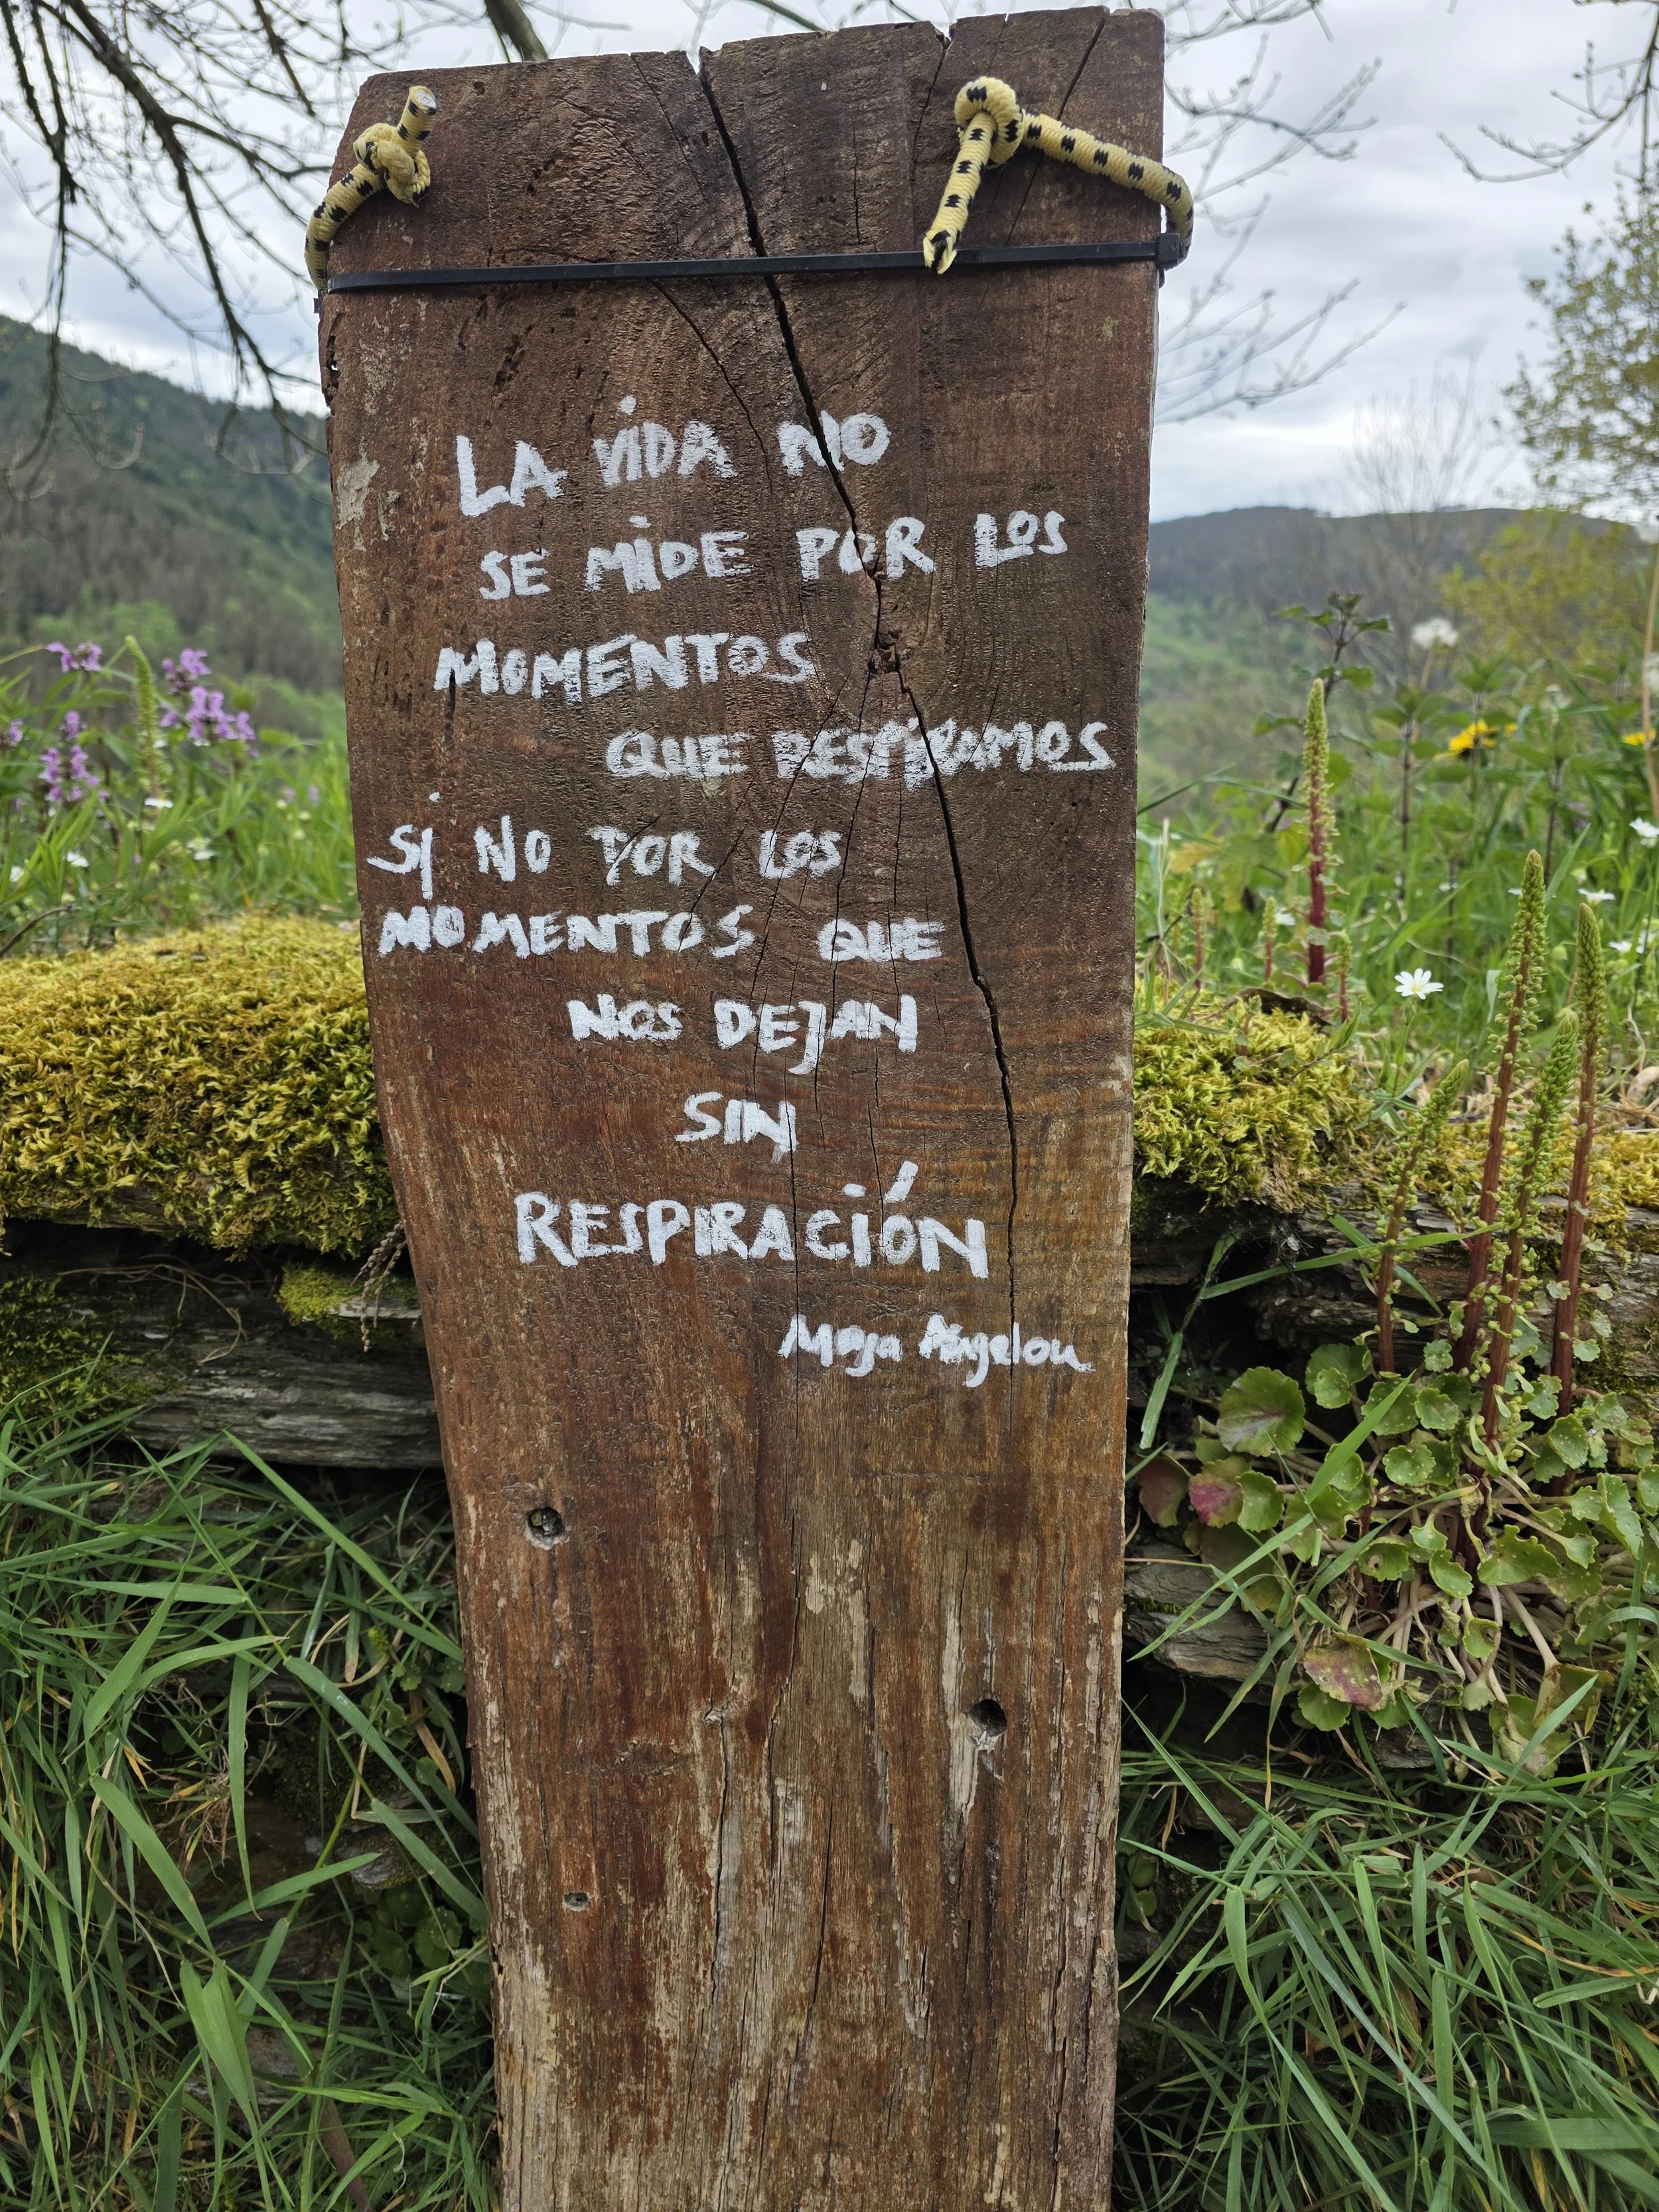 LA VIDA NO
SE MIDE POR LOS
MOMENTOS
QUE RESPIRAMOS
SI NO POR LOS
MOMENTOS QUE
NOS DEJAN
SIN
RESPIRACIÓN
Maya Angelou